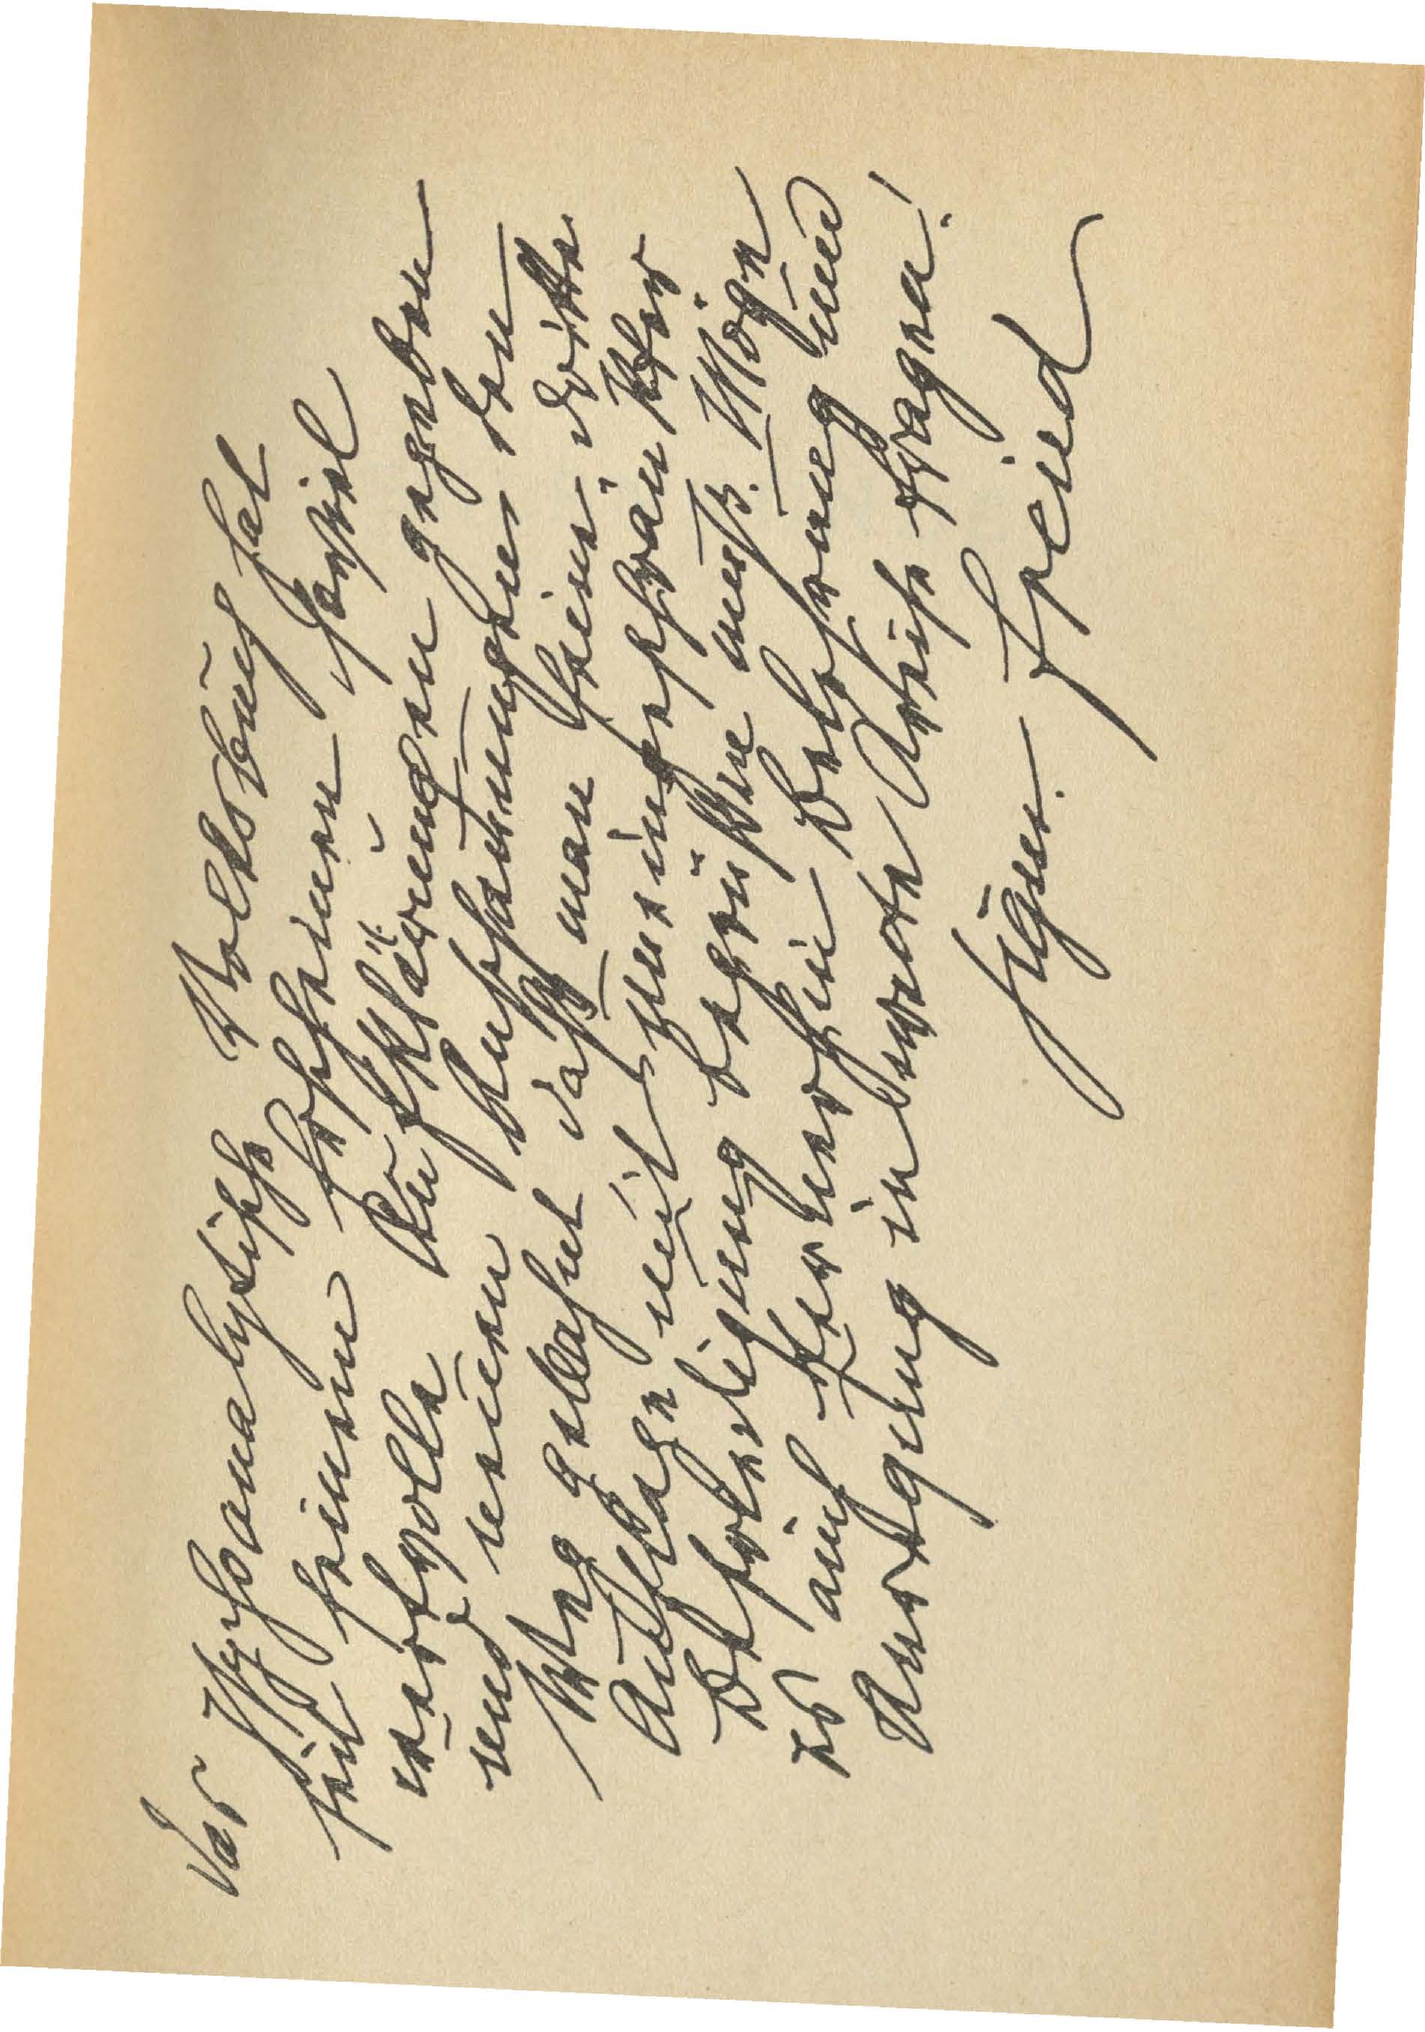 Das Psychoanalytische Volksbuch hat
seit seinem Erscheinen soviel
wertvolle Aufklärungen gegeben
und neuen Anschauungen den
Weg gebahnt daß man seine dritte
Auflage mit uneingeschränkter
Befriedigung begrüßen muß. Möge
es auch fernerhin Belehrung und
Anregung in weite Kreise tragen!
Sigm. Freud